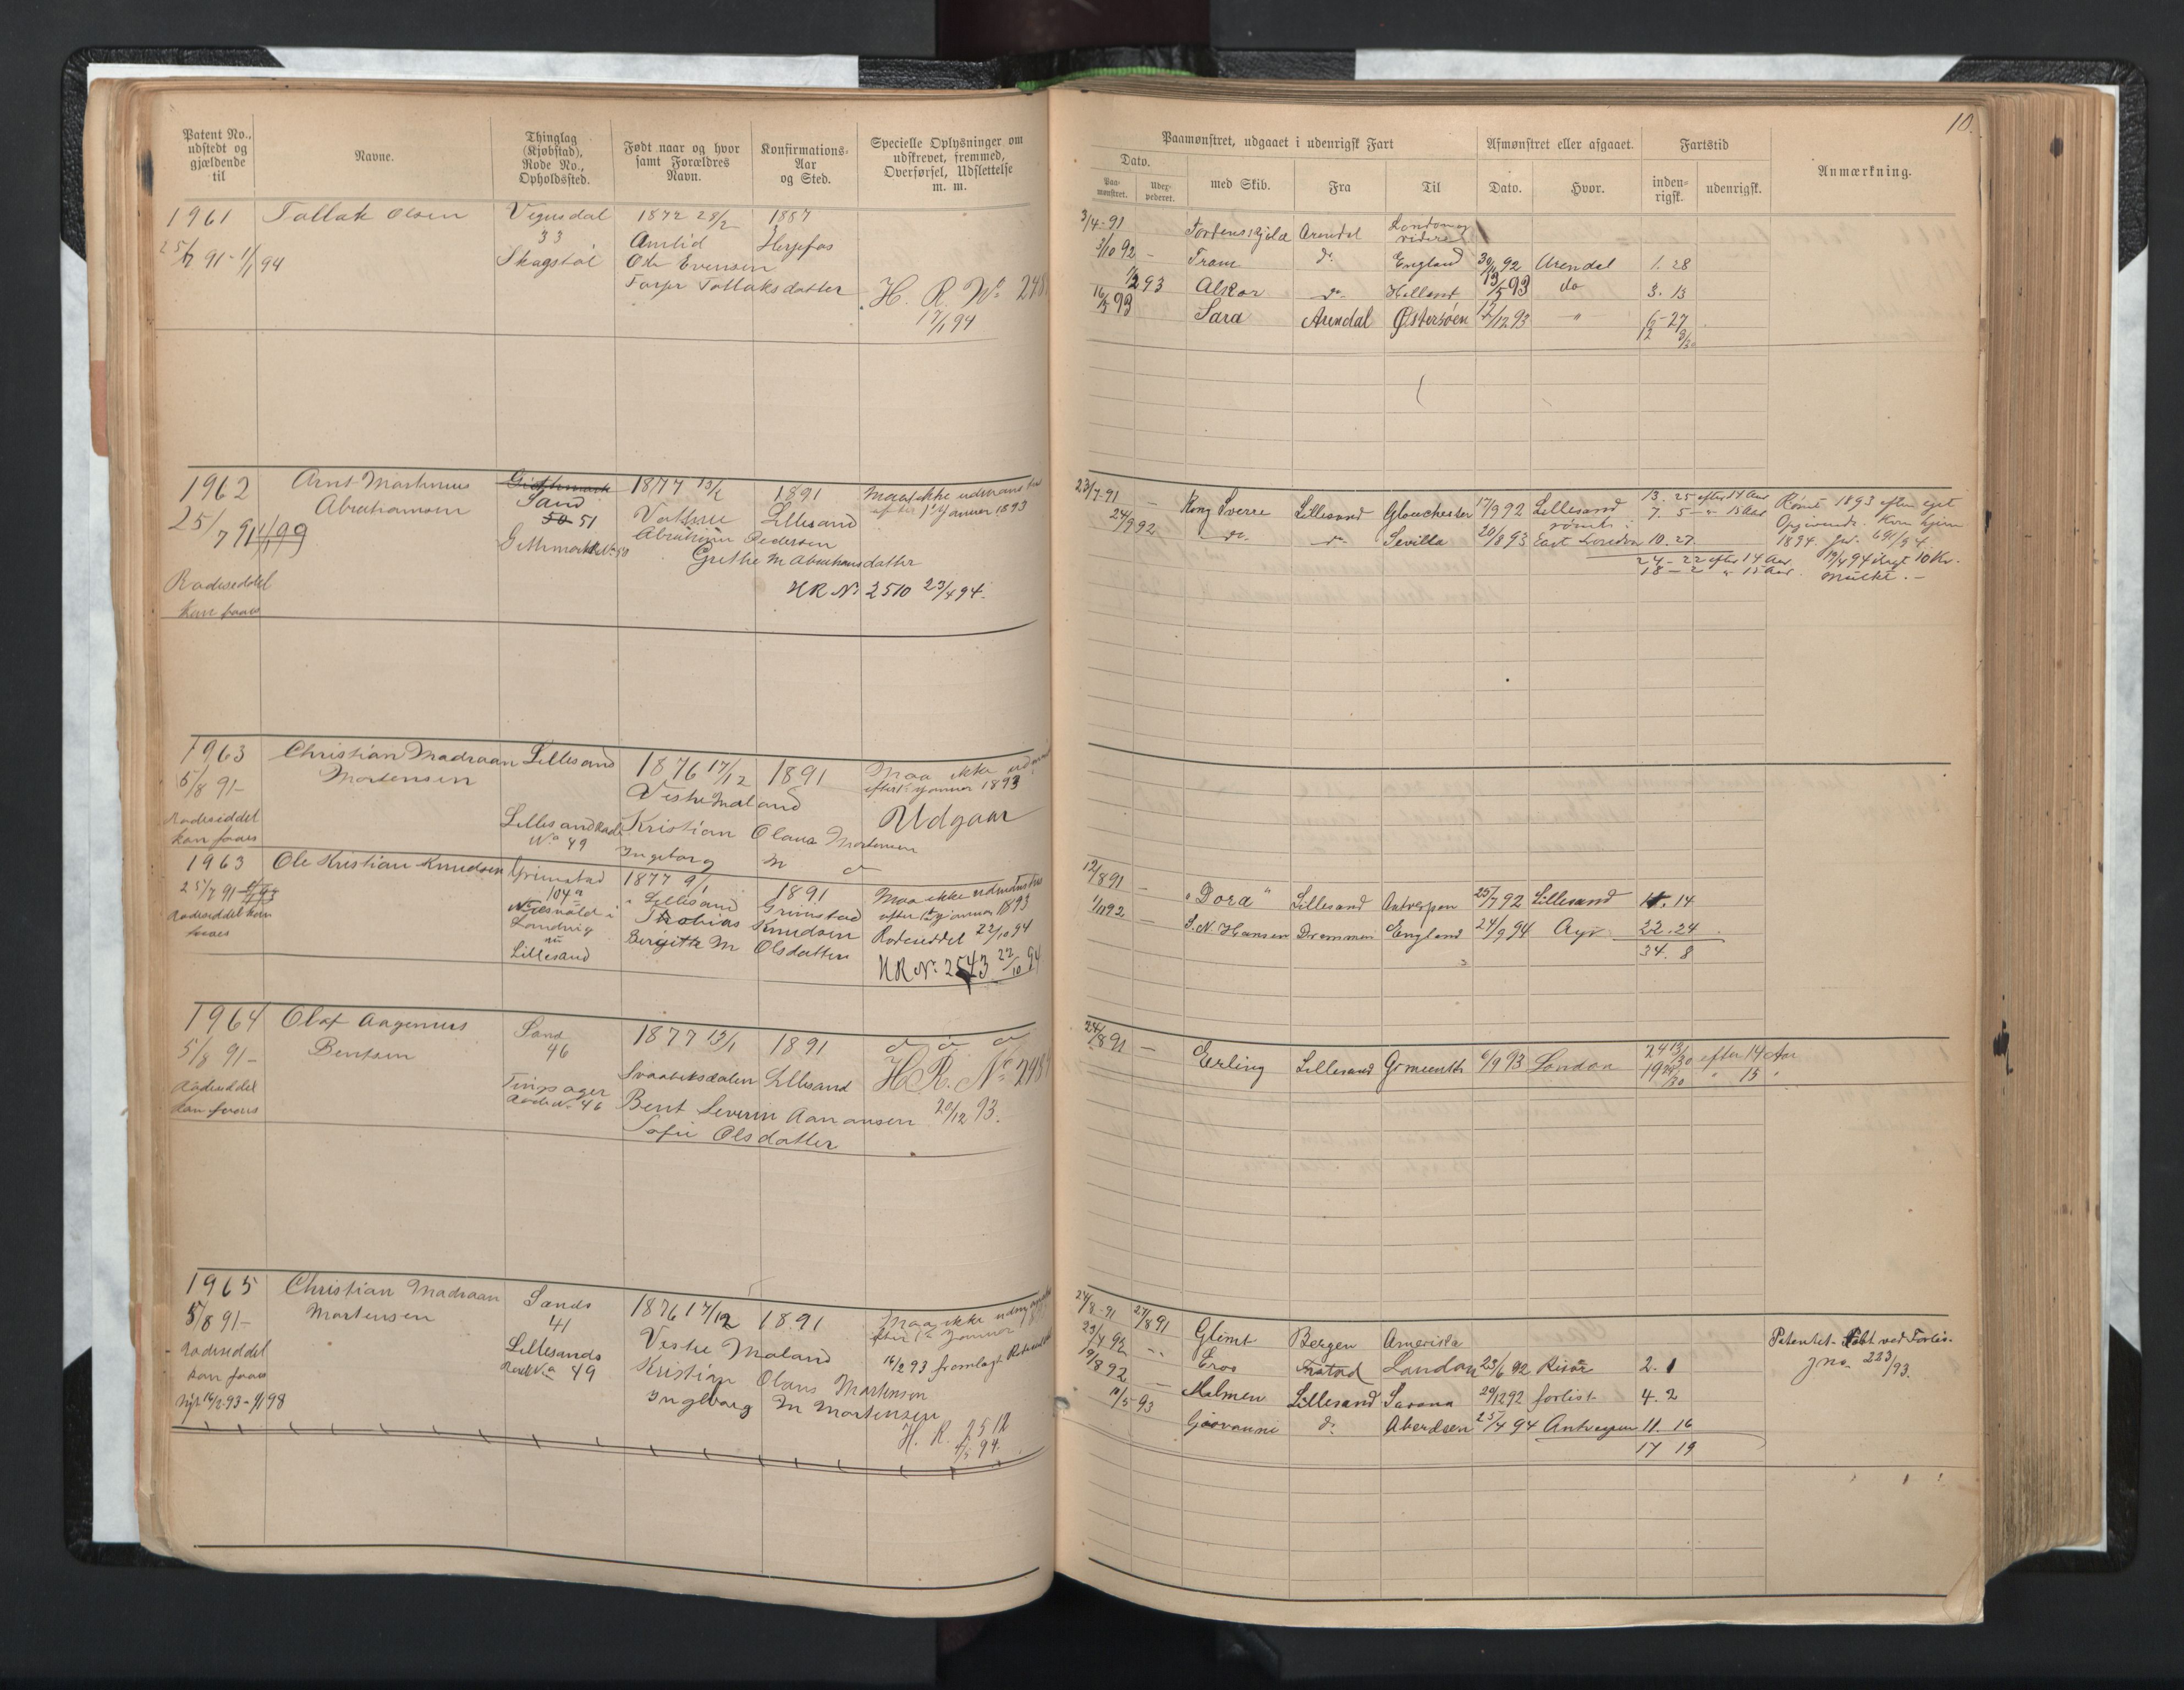 Patent No., udstedt og gjældende til
Navne.
Thinglag (Kjøbstad), Rode No., Opholdssted.
Født naar og hvor samt Forældres Navn.
Konfirmations-Aar og Sted.
Specielle Oplysninger om udskrevet, fremmed, Overførsel, Udslettelse m. m.
1961 Tallak Olsen Vegusdal 1872 28/2 1887
33 Amlid Herefos
25/7 91 - 1/1 94 Skagstøl Ole Evensen
Tallaksdatter H. R. No 248
17/1 94
1962 Arnt Martinius Sand 1877 13/2 1891 Maa ikke udmønstres
Abrahamsen 50 51 Vatsæe Lillesand efter 1ste Januar 1893
25/7 91 1/1 99 Abraham Pedersen
Grethe M Abrahamsdatter
Rodeseddel HR No 2510 23/4 94.
kan faaes
1963 Christian Madraan Lillesand 1876 17/12 1891 Maa ikke
Mortensen Vestre Maland efter 1ste Januar 1893
5/8 91- Udgaar
Rodeseddel Lillesand Rode Kristian Olaus Mortensen
kan faaes No 49 Ingeborg M do
1963 Ole Kristian Knudsen Grimstad 1877 9/1 1891 Maa ikke udmønstres
25/7 91 104 a Lillesand Grimstad efter 1ste Januar 1893
Rodeseddel kan Landvig Thobias Knudsen Rodeseddel 22/10 94
faaes nu Birgitte M Olsdatter
Lillesand HR No 2543 22/10 94
1964 Olaf Aagenius Sand 1877 13/1 1891 do do do
Bentsen 46 Lillesand H. R. No 248
5/8 91-
Rodeseddel Tingsager Bent Severin Aanonsen 20/12 93.
kan faaes Rode No 46 Sofie Olsdatter
1965 Christian Madraan Sands 1876 17/12 1891 Maa ikke
Mortensen 41 efter 1ste Januar
5/8 91- Lillesands Vestre Maland 16/2 93 fremlagt
Rodeseddel Rode No 49 Kristian Olaus Mortensen
kan faaes Ingeborg M Mortensen
Nyt 16/2 93 - 1/1 98 H. R. 2512
94.
10.
Paamønstret, udgaaet i udenrigsk Fart
Afmønstret eller afgaaet.
Fartstid
Anmærkning.
Dato.
Paa-mønstret.
Udex-pederet.
med Skib.
Fra
Til
Dato.
Hvor.
inden-rigsk.
udenrigsk.
3/4-91 Tordenskjold Arendal London og videre
3/10 92 - Fram do England 30/11 92 Arendal 1. 28
1/2 93 Alkor do Holland 13/5 93 do 3. 13
16/5 93 Sara Arendal Østersøen 12/12 93 " 6-27
23/7-91 - Kong Sverre Lillesand Glouchester 17/9 92 Lillesand 13. 25 efter 14 Aar Rømt 1893 efter eget
24/9 92 do do Sevilla 20/8 93 rømt i East London 10. 27. 7. 5 - " 15 Aar Opgivende. Kom hjem
24-22 efter 14 Aar 1894.
18-2 " 15 Aar. 19/4 94 ilagt 10 Kr.
Mulkt.-
12/8 91 - "Dora" Lillesand Antverpen 25/7 92 Lillesand 11. 14
1/11 92 - S. N. Hansen Drammen England 24/9 94 Ayr 22. 24
34. 8
24/8 91 - Erling Lillesand Grimsby 6/9 93 London 24 13/30 efter 14 Aar
" 15 "
24/8-91 27/8 91 Glimt Bergen Amerika Patentet tabt ved Forlis.
23/4 92 Eros London 23/6 92 Risør 2. 1 jno. 223/93.
19/8 92 - Malmen Lillesand Savona 29/12 92 forlist 4. 2
10/5 93 Giovanni do Aberdeen 25/4 94 Antverpen 11. 16
17 19